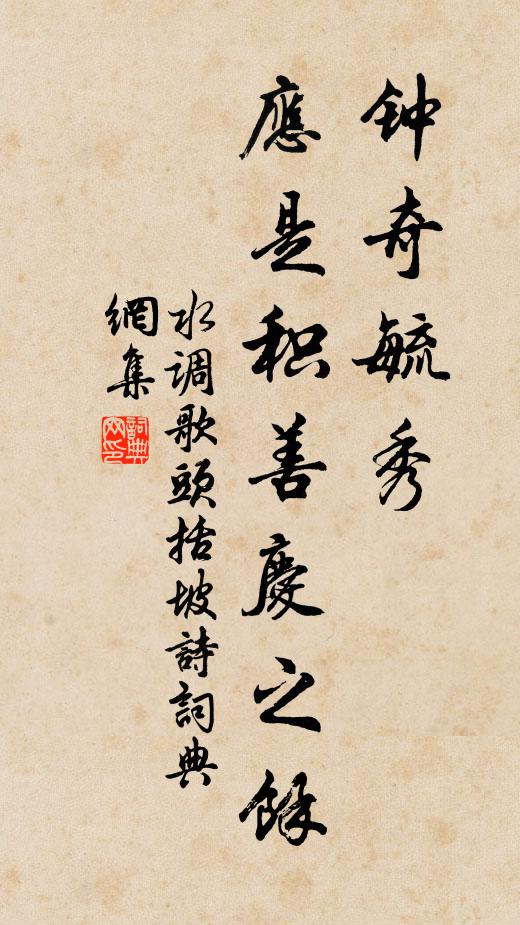 钟奇毓秀
應是积善慶之餘
水调歌頭括坡詩詞典
網集
詞典网印